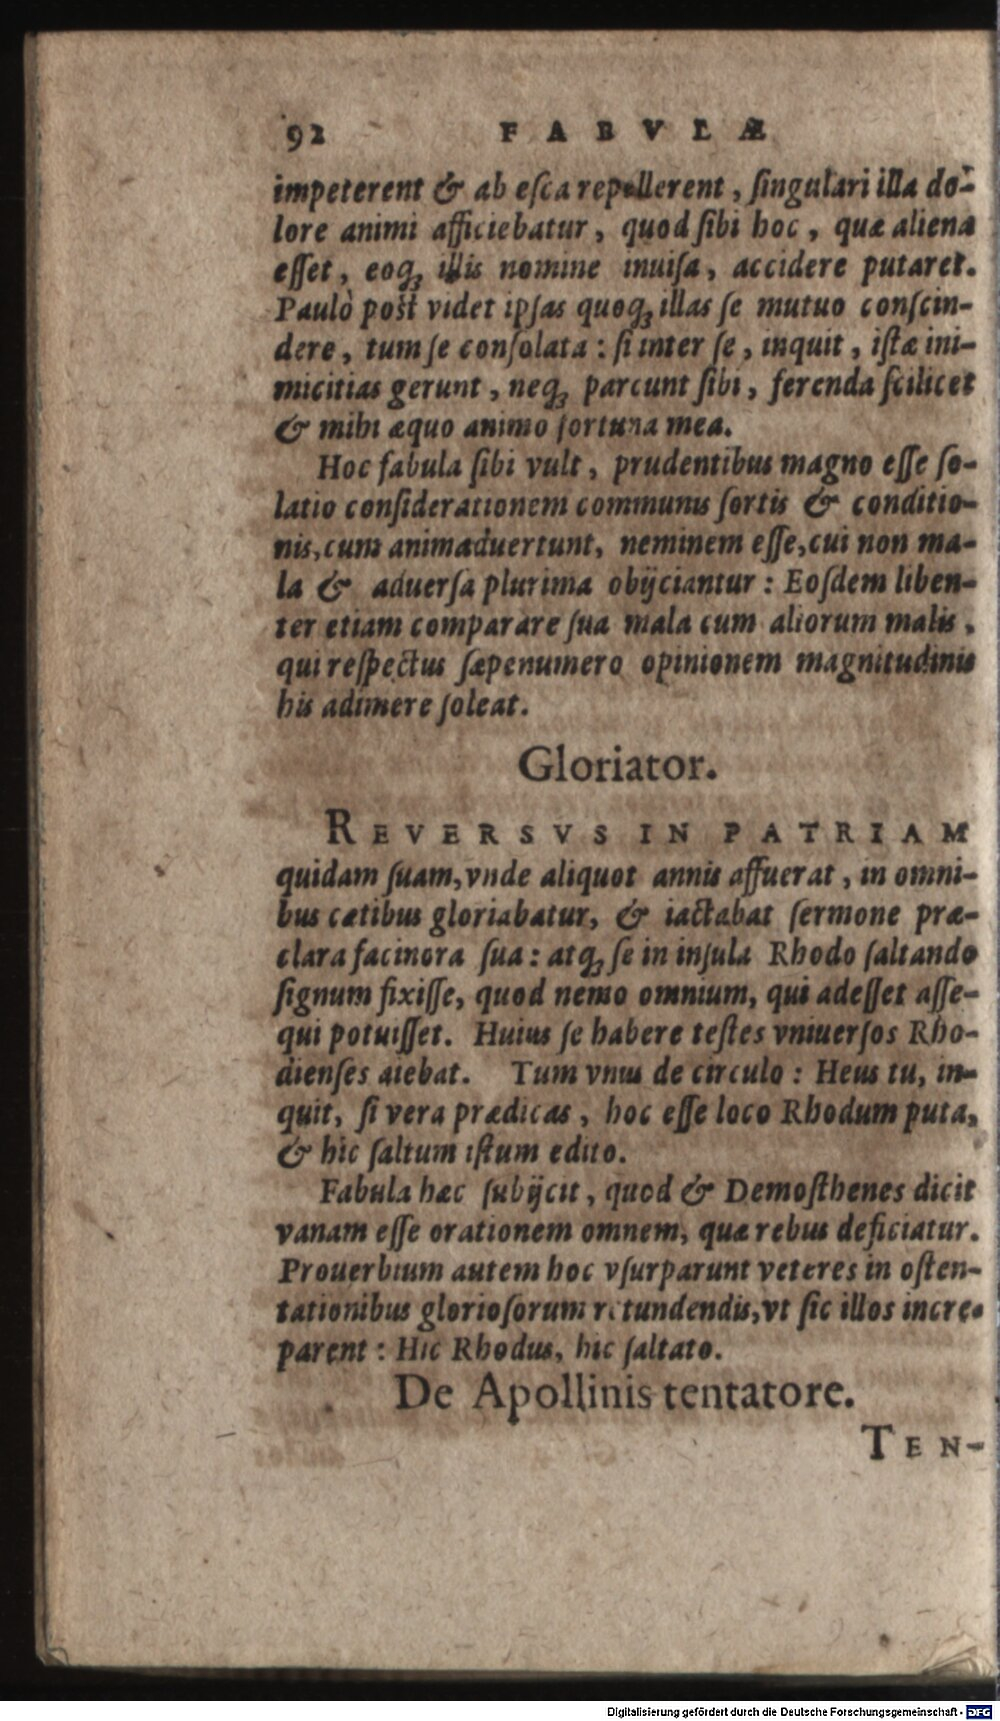 92 FABVLÆ
impeterent & ab esca repellerent, singulari illa do-
lore animi afficiebatur, quod sibi hoc, quæ aliena
esset, eoq; illis nomine inuisa, accidere putaret.
Paulò post videt ipsas quoq; illas se mutuo conscin-
dere, tum se consolata: si inter se, inquit, istæ ini-
micitias gerunt, neq; parcunt sibi, ferenda scilicet
& mihi æquo animo fortuna mea.
Hoc fabula sibi vult, prudentibus magno esse so-
latio considerationem communis sortis & conditio-
nis, cum animaduertunt, neminem esse, cui non ma-
la & aduersa plurima obijciantur: Eosdem liben-
ter etiam comparare sua mala cum aliorum malis,
qui respectus sæpenumero opinionem magnitudinis
his adimere soleat.
Gloriator.
REVERSVS IN PATRIAM
quidam suam, vnde aliquot annis affuerat, in omni-
bus cætibus gloriabatur, & iactabat sermone præ-
clara facinora sua: atq; se in insula Rhodo saltando
signum fixisse, quod nemo omnium, qui adesset asse-
qui potuisset. Huius se habere testes vniuersos Rho-
dienses aiebat. Tum vnus de circulo: Heus tu, in-
quit, si vera prædicas, hoc esse loco Rhodum puta,
& hic saltum istum edito.
Fabula hæc subijcit, quod & Demosthenes dicit
vanam esse orationem omnem, quæ rebus deficiatur.
Prouerbium autem hoc vsurparunt veteres in osten-
tationibus gloriosorum retundendis, vt sic illos incre-
parent: Hic Rhodus, hic saltato.
De Apollinis tentatore.
TEN-
Digitalisierung gefördert durch die Deutsche Forschungsgemeinschaft - DFG